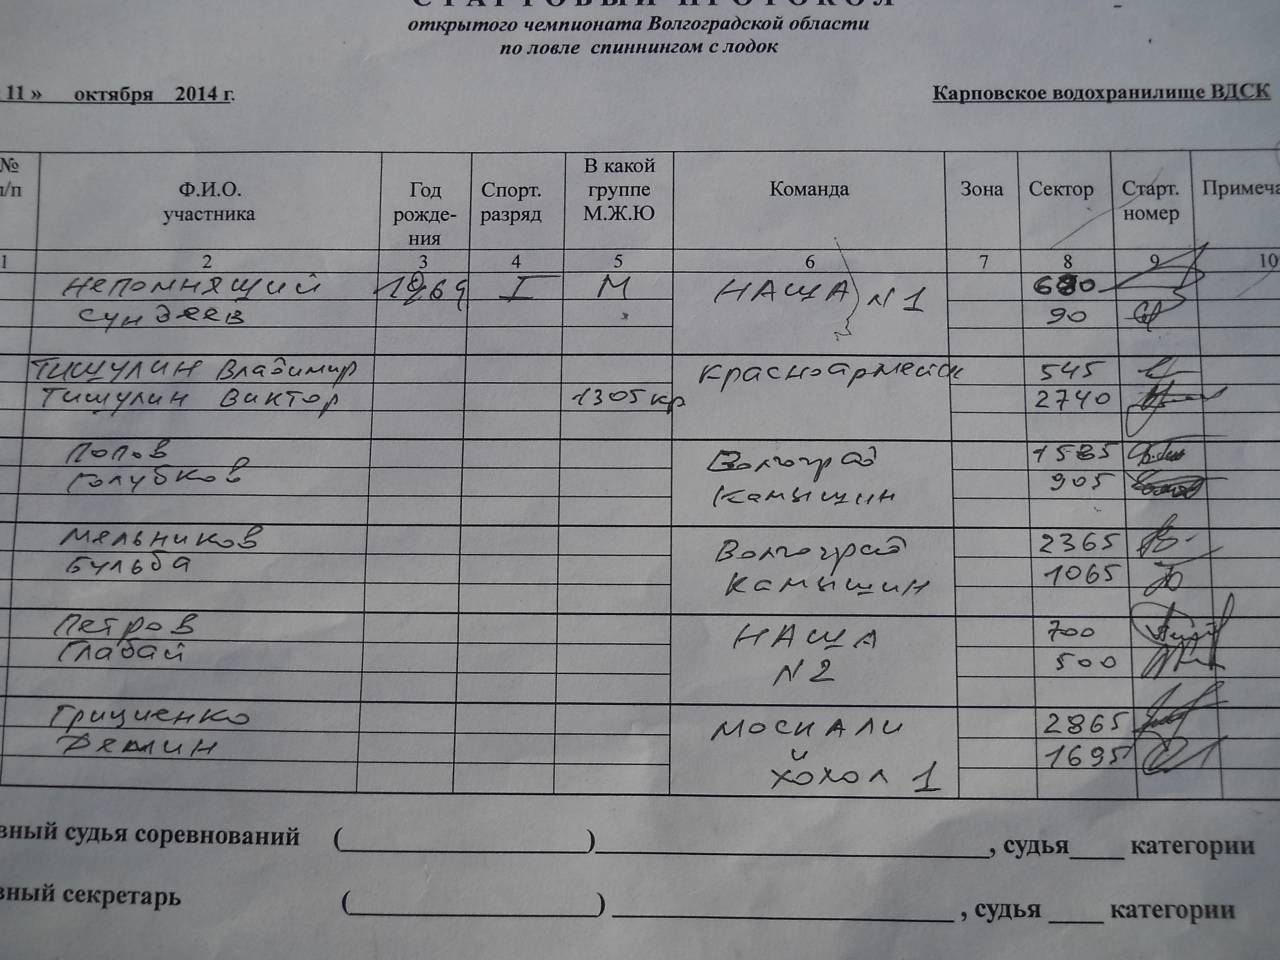 СТАРТОВЫЙ ПРОТОКОЛ
открытого чемпионата Волгоградской области
по ловле спиннингом с лодок
11 » октября 2014 г. Карповское водохранилище ВДСК
№ п/п Ф.И.О. участника Год рожде-ния Спорт. разряд В какой группе М.Ж.Ю Команда Зона Сектор Старт. номер Примеча
1 2 3 4 5 6 7 8 9 10
Непомнящий 1969 I М НАША N 1 680
Сундеев 90
Тишулин Владимир Красноармейск 545
Тишулин Виктор 1305кр 2740
Попов Волгоград 1585
Голубков Камышин 905
Мельников Волгоград 2365
Бульба Камышин 1065
Петров НАША 700
Глабай N2 500
Грициенко Москали 2865
Демин й хохол 1 1695
вный судья соревнований (____)____, судья____ категории
вный секретарь (____)____, судья ____ категории